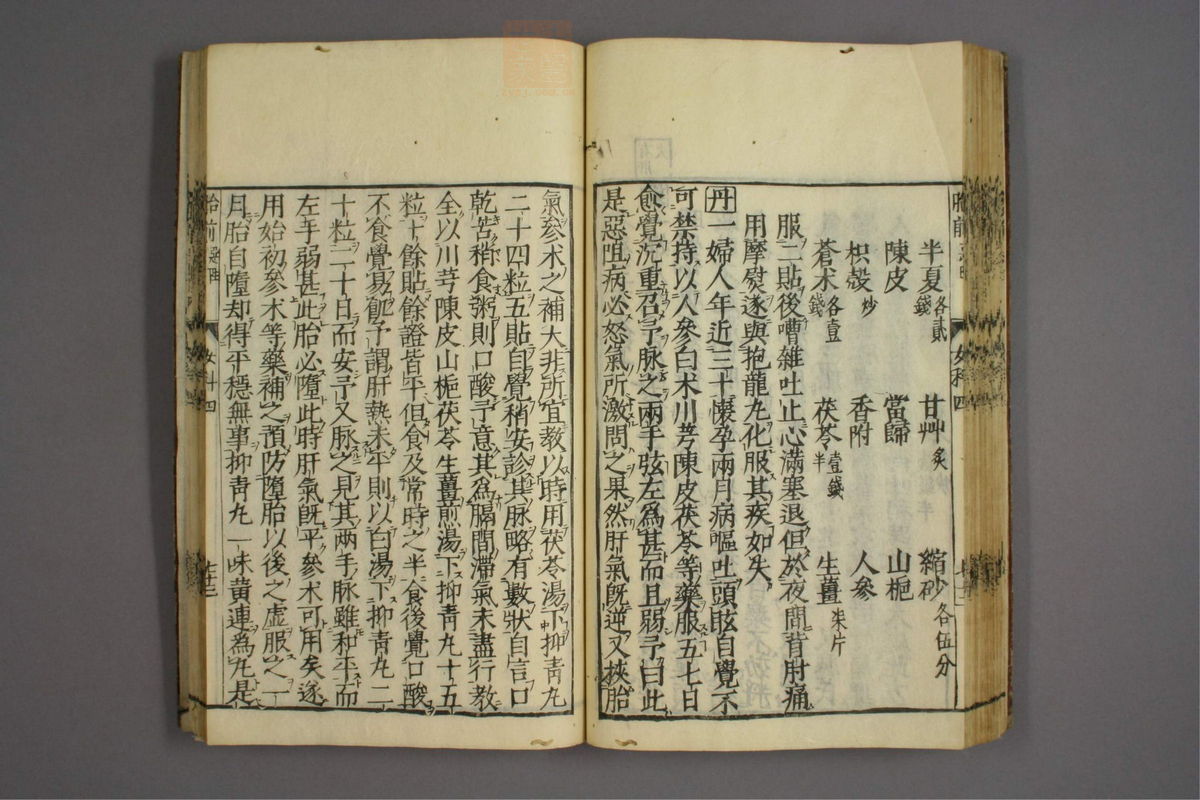 半夏各貳錢　甘艸炙　縮砂各伍分
陳皮　當歸　山梔
枳殼炒　香附　人參
蒼朮各壹錢　茯苓壹錢半　生薑柒片
服二貼後嘈雜吐止心滿塞退但於夜間背肘痛
用摩熨遂與抱龍丸化服其疾如失
丹一婦人年近三十懷孕兩月病嘔吐頭眩自覺不
可禁持以人參白朮川芎陳皮茯苓等藥服五七日
愈覺沉重召予脉之兩手弦左爲甚而且弱予曰此
是惡阻病必怒氣所激問之果然肝氣旣逆又挾胎
氣參朮之補大非所宜教以時用茯苓湯下抑靑丸
二十四粒五貼自覺稍安診其脉略有數狀自言口
乾苦稍食粥則口酸予意其爲膈間滯氣未盡行教
全以川芎陳皮山梔茯苓生薑煎湯下抑靑丸十五
粒十餘貼餘證皆平但食及常時之半食後覺口酸
不食覺易飢予謂肝熱未平則以白湯下抑靑丸二
十粒二十日而安予又脉之見其兩手脉雖和平而
左手弱甚此胎必墮此時肝氣旣平參朮可用矣遂
用始初參朮等藥補之預防墮胎以後之虛服之一
月胎自墮却得平穩無事抑靑丸一味黃連爲丸是
胎前
女科四
七十三